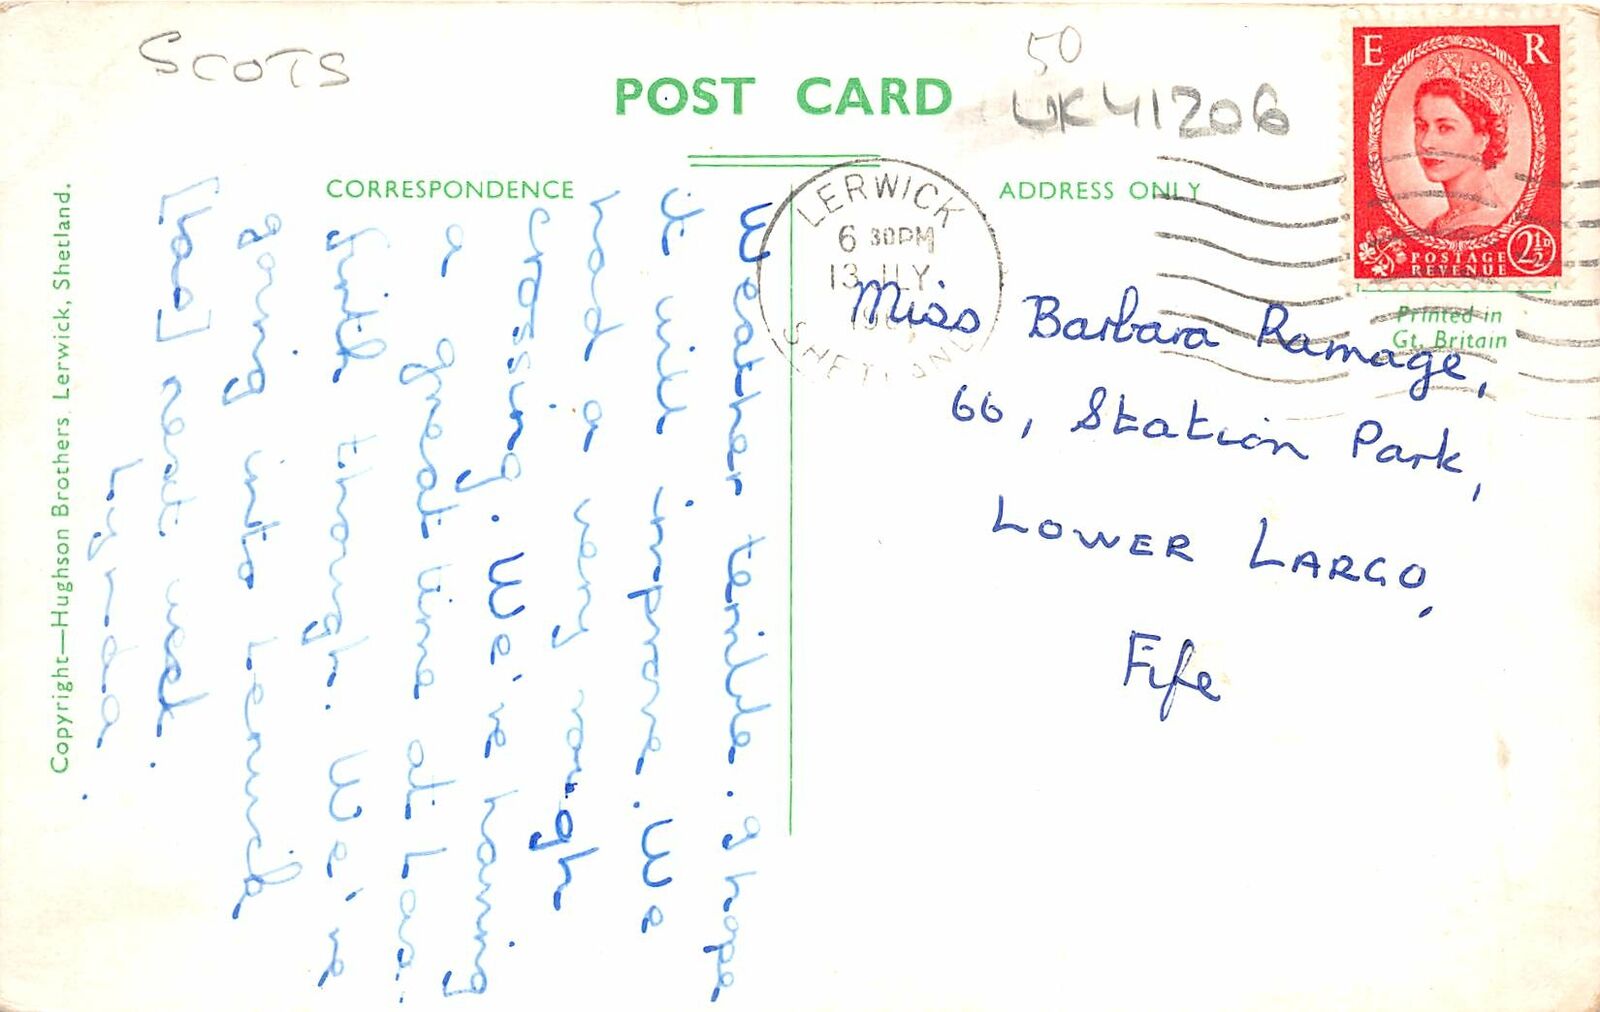 SCOTS
50
POST CARD
UK41206
E R
POSTAGE
REVENUE
2½D
CORRESPONDENCE
ADDRESS ONLY
LERWICK
6 30PM
13 JLY
SHETLAND
Printed in
Gt. Britain
Weather terrible. I hope
it will improve. We
had a very rough
crossing. We're having
a great time at
firth though. We're
going into Lerwick
next week.
Lynda.
Miss Barbara Ramage,
66, Station Park,
LOWER LARGO,
Fife
Copyright—Hughson Brothers, Lerwick, Shetland.